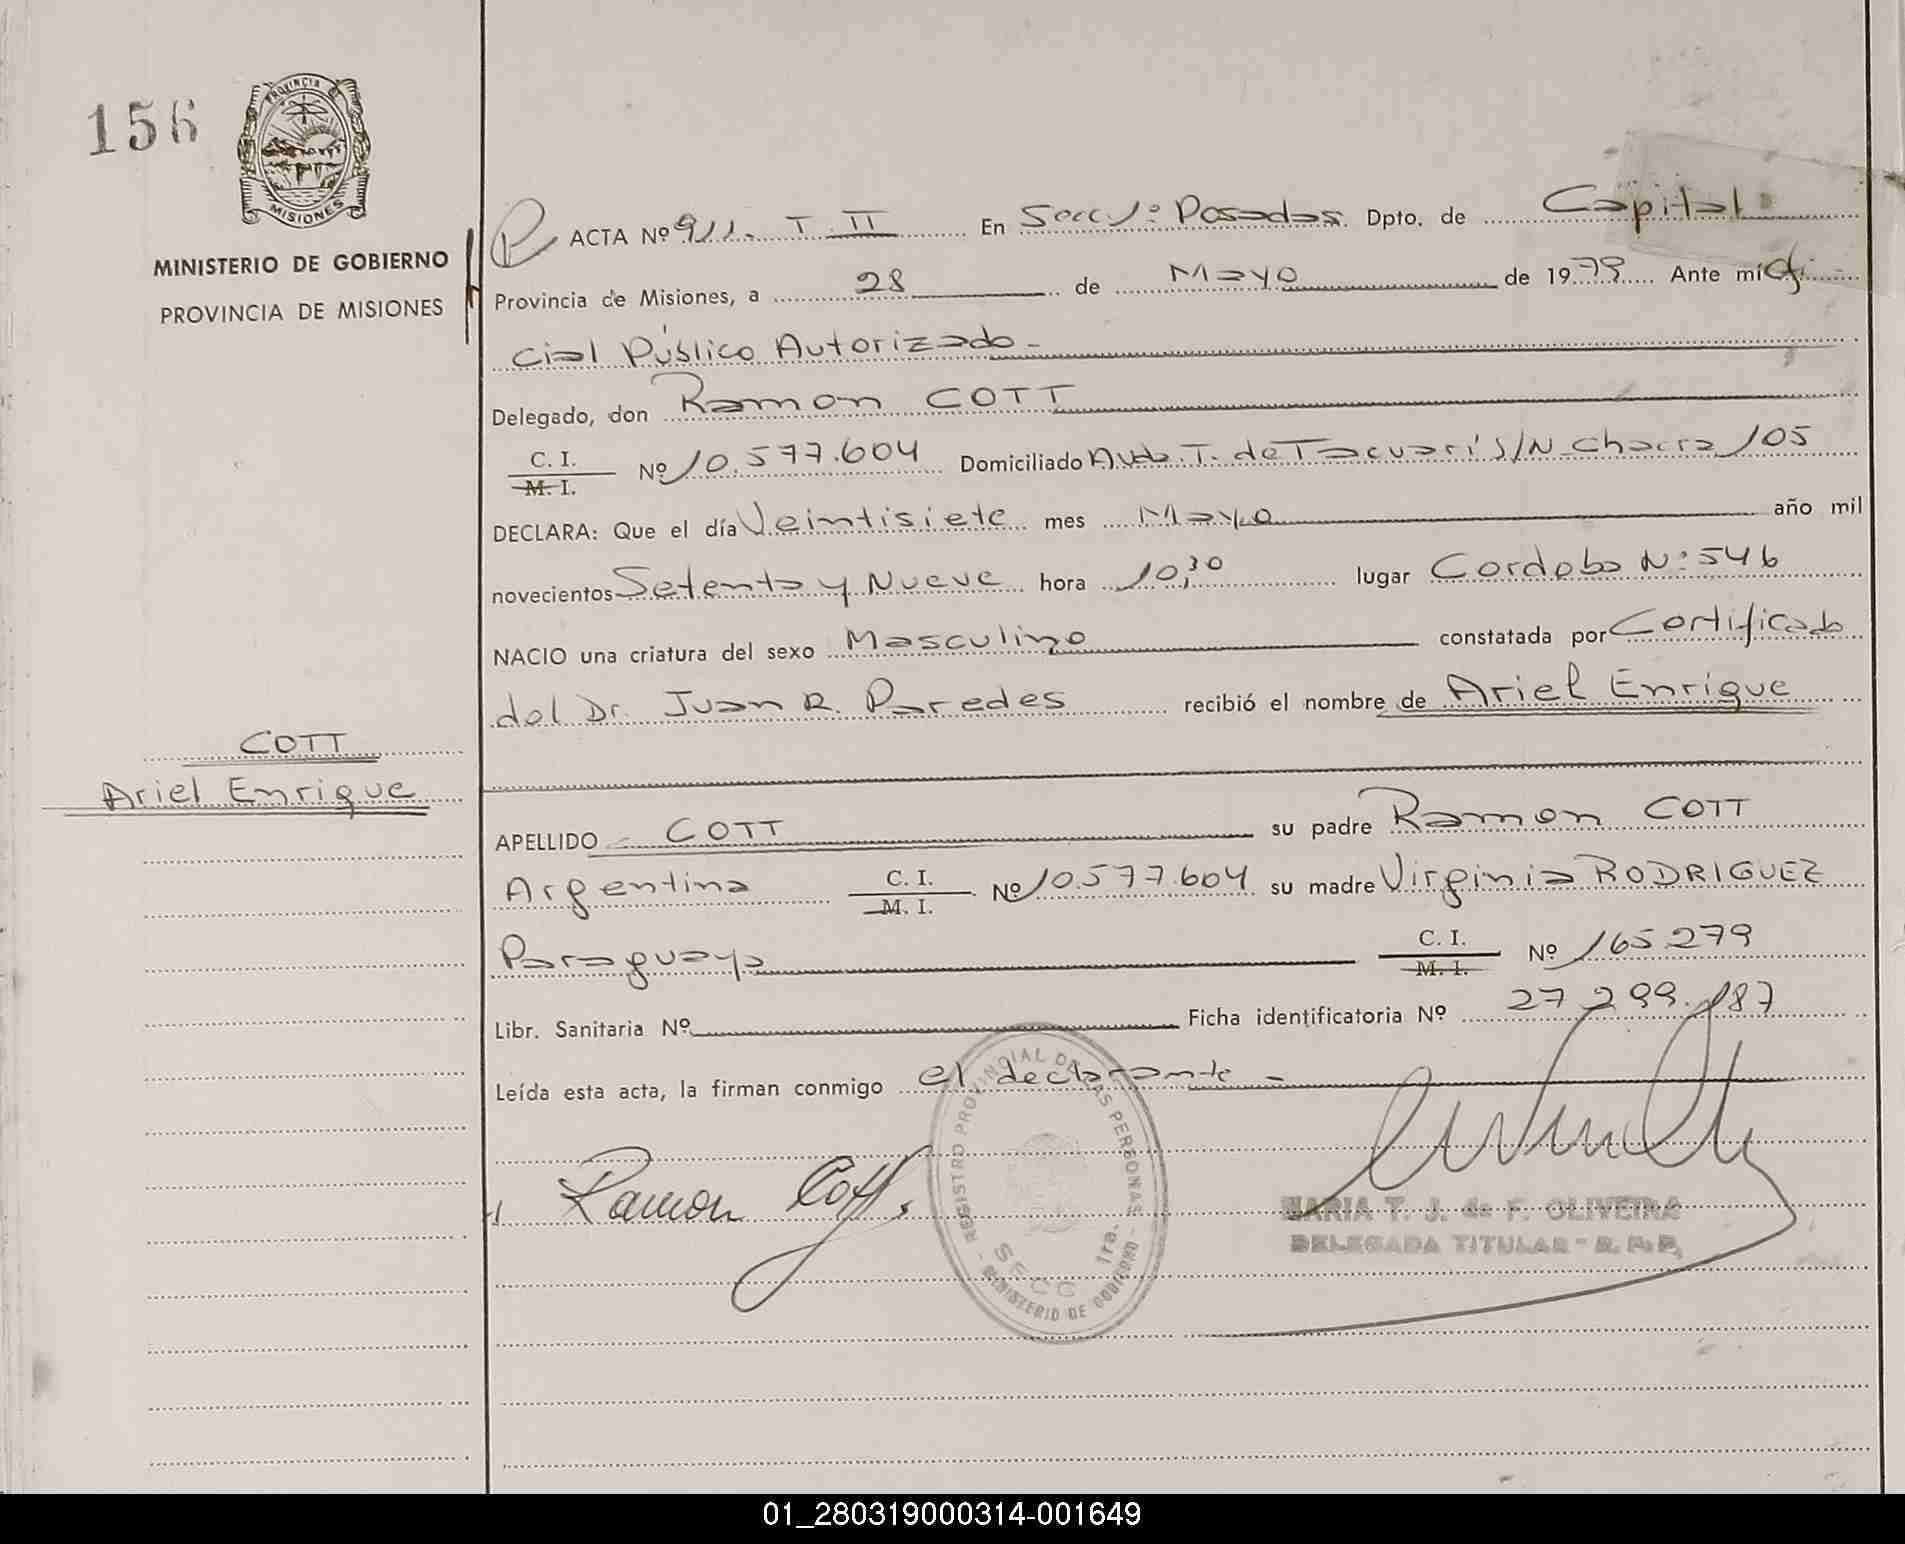 156
PROVINCIA DE
MISIONES
MINISTERIO DE GOBIERNO
PROVINCIA DE MISIONES
COTT
Ariel Enrique
ACTA Nº 911. T. II En Secc 1º Posadas. Dpto. de Capital
Provincia de Misiones, a 28 de Mayo de 1979 Ante mí Ofi
cial Público Autorizado -
Delegado, don Ramon COTT
C. I.
M. I.
Nº 10.577.604 Domiciliado Avda. T. de Tacuari S/N Chacra 105
DECLARA: Que el día Veintisiete mes Mayo año mil
novecientos Setenta y Nueve hora 10,30 lugar Cordoba Nº 546
NACIO una criatura del sexo Masculino constatada por Certificado
del Dr. Juan R. Paredes recibió el nombre de Ariel Enrique
APELLIDO COTT su padre Ramon COTT
Argentina C. I. M. I. Nº 10.577.604 su madre Virginia RODRIGUEZ
Paraguaya C. I. M. I. Nº 165.279
Libr. Sanitaria Nº Ficha identificatoria Nº 27.299.187
Leída esta acta, la firman conmigo el declarante -
Ramon Cott.
REGISTRO PROVINCIAL DE LAS PERSONAS
SECC 1ra.
MINISTERIO DE GOBIERNO
MARIA T. J. de F. OLIVEIRA
DELEGADA TITULAR - R. P. P.
01_280319000314-001649